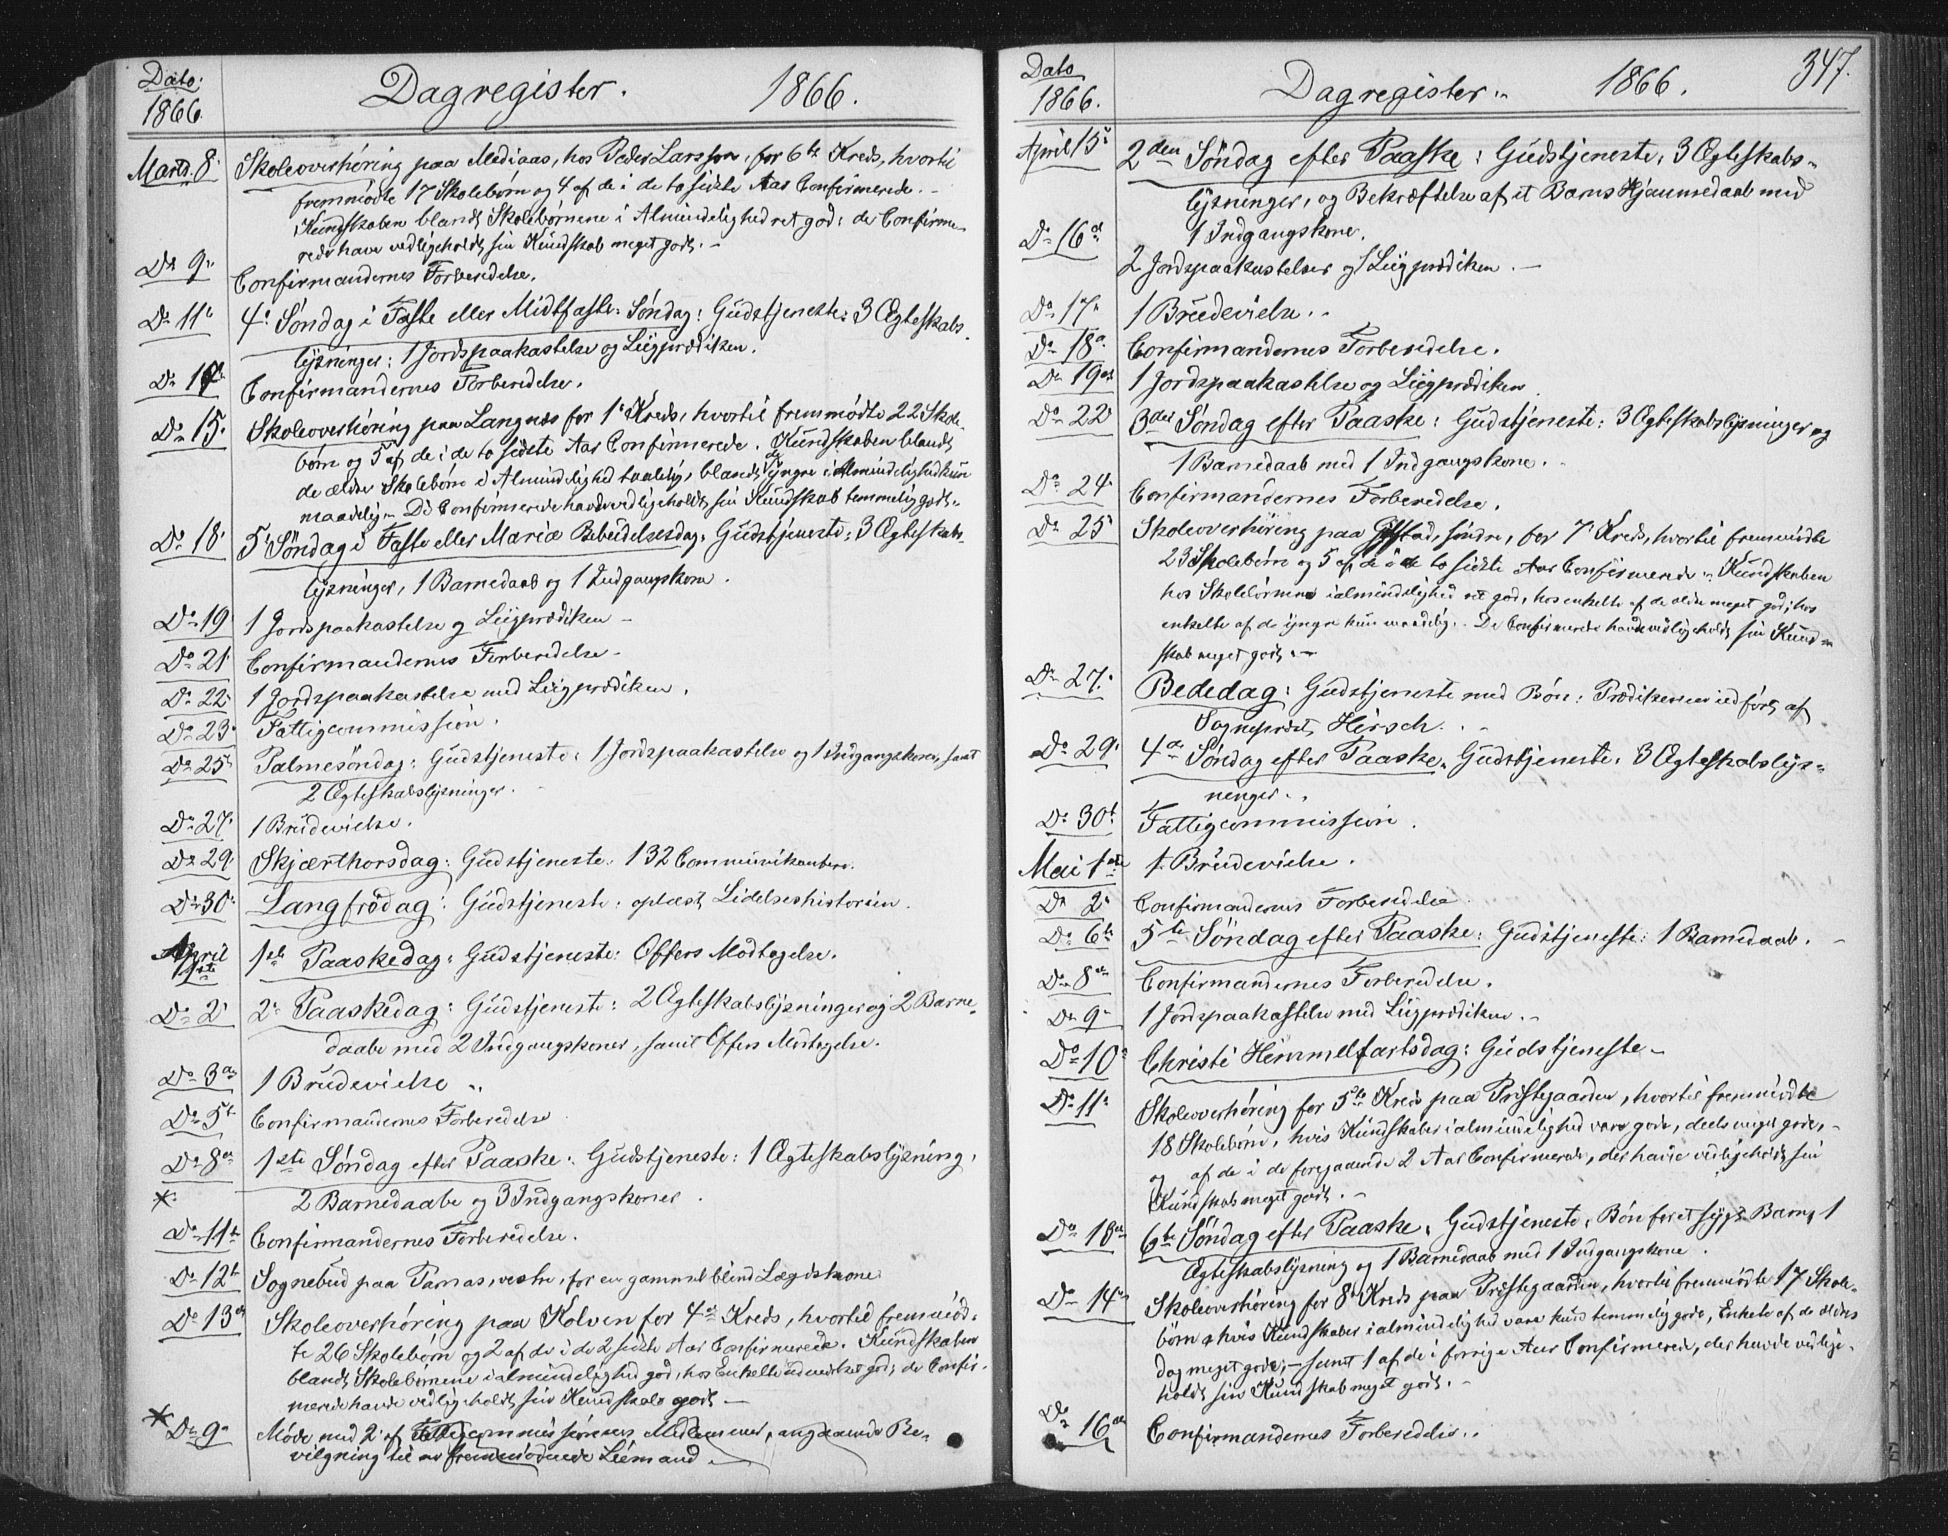 Dato
1866.
Dagregister. 1866.
Marts 8. Skoleoverhøring paa Mediaas, hos Peder Larssen, for 6te Kreds, hvortil
fremmødte 17 Skolebørn og 4 af de i de to sidste Aar Confirmerede. -
Kundskaben blandt Skolebørnene i Almindelighed ret god: de Confirme-
rede have vedligeholdt sin Kundskab meget godt. -
Do 9. Confirmandernes Forberedelse.
Do 11. 4. Søndag i Faste eller Midtfaste-Søndag: Gudstjeneste: 3 Ægteskabs-
lysninger: 1 Jordspaakastelse og Liigprædiken.
Do 14. Confirmandernes Forberedelse.
Do 15. Skoleoverhøring paa Langnæs for 1. Kreds, hvortil fremmødte 22 Skole-
børn og 5 af de i de to sidste Aar Confirmerede. Kundskaben blandt
de ældre Skolebørn i Almindelighed taalelig, blandt de yngre i Almindelighed kun
maadelig. De Confirmerede havde vedligeholdt sin Kundskab temmelig godt.
Do 18. 5. Søndag i Faste eller Mariæ Bebudelsesdag: Gudstjeneste: 3 Ægteskabs-
lysninger, 1 Barnedaab og 1 Indgangskone.
Do 19. 1 Jordspaakastelse og Liigprædiken -
Do 21. Confirmandernes Forberedelse -
Do 22. 1 Jordspaakastelse med Liigprædiken.
Do 23. Fattigcommission.
Do 25. Palmesøndag: Gudstjeneste: 1 Jordspaakastelse og 1 Indgangskone, samt
2 Ægteskabslysninger.
Do 27. 1 Brudevielse.
Do 29. Skjærthorsdag: Gudstjeneste: 132 Communikantere.
Do 30. Langfredag: Gudstjeneste: oplæst Lidelseshistorien.
April 1ste 1ste Paaskedag: Gudstjeneste: Offers Modtagelse.
Do 2. 2. Paaskedag: Gudstjeneste: 2 Ægteskabslysninger og 2 Barne-
daabe med 2 Indgangskoner, samt Offers Modtagelse.
Do 3. 1 Brudevielse.
Do 5. Confirmandernes Forberedelse
Do 8. 1ste Søndag efter Paaske: Gudstjeneste: 1 Ægteskabslysning,
* 2 Barnedaabe og 3 Indgangskoner.
Do 11. Confirmandernes Forberedelse.
Do 12. Sognebud paa Parnas, vestre, for en gammel blind Lægdskone
Do 13. Skoleoverhøring paa Kolven for 4de Kreds, hvortil fremmød-
te 26 Skolebørn og 2 af de i de 2 sidste Aar Confirmerede. Kundskaben
blandt Skolebørnene i almindelighed god, hos Enkelte udmærket god; de Confir-
merede havde vedligeholdt sin Kundskab godt. -
* Do 9. Møde med 2 af Fattigcommissionens Medlemmer, angaaende Be-
vilgning til en fremmødende Liemand.
Dato
1866.
Dagregister. 1866. 347.
April 15. 2den Søndag efter Paaske: Gudstjeneste: 3 Ægteskabs-
lysninger, og Bekræftelse af et Barns Hjemmedaab med
1 Indgangskone.
Do 16. 2 Jordspaakastelser og 1 Liigprædiken. -
Do 17. 1 Brudevielse.
Do 18. Confirmandernes Forberedelse.
Do 19. 1 Jordspaakastelse og Liigprædiken
Do 22. 3die Søndag efter Paaske: Gudstjeneste: 3 Ægteskabslysninger og
1 Barnedaab med 1 Indgangskone.
Do 24. Confirmandernes Forberedelse.
Do 25. Skoleoverhøring paa søndre, for 7. Kreds, hvortil fremmødte
23 Skolebørn og 5 af de i de to sidste Aar Confirmerede. Kundskaben
hos Skolebørnene i almindelighed ret god, hos enkelte af de ældre meget god; hos
enkelte af de yngre kun maadelig. De Confirmerede havde vedligeholdt sin Kund-
skab meget godt. -
Do 27. Bededag: Gudstjeneste med Bøn: Prædikenen udført af
Sognepræst Hirsch.
Do 29. 4de Søndag efter Paaske. Gudstjeneste. 3 Ægteskabslys-
ninger.
Do 30. Fattigcommission.
Mai 1ste 1. Brudevielse.
Do 2. Confirmandernes Forberedelse
Do 6te 5te Søndag efter Paaske: Gudstjeneste: 1 Barnedaab.
Do 8. Confirmandernes Forberedelse.
Do 9. 1 Jordspaakastelse med Liigprædiken. -
Do 10. Christi Himmelfartsdag: Gudstjeneste -
Do 11. Skoleoverhøring for 5te Kreds paa Præstegaarden, hvortil fremmødte
18 Skolebørn, hvis Kundskaber i almindelighed vare gode, deels meget gode, -
og af de i de foregaaende 2 Aar Confirmerede, der havde vedligeholdt sin
Kundskab meget godt. -
Do 13. 6te Søndag efter Paaske. Gudstjeneste, Bøn for et sygt Barn, 1
Ægteskabslysning og 1 Barnedaab med 1 Indgangskone.
Do 14. Skoleoverhøring for 8. Kreds paa Præstegaarden, hvortil fremmødte 17 Skole-
børn, hvis Kundskaber i almindelighed vare kun temmelig gode, Enkelte af de ældres
dog meget gode; - samt 1 af de i forrige Aar Confirmerede, der havde vedlige-
holdt sin Kundskab meget godt. -
Do 16. Confirmandernes Forberedelse.